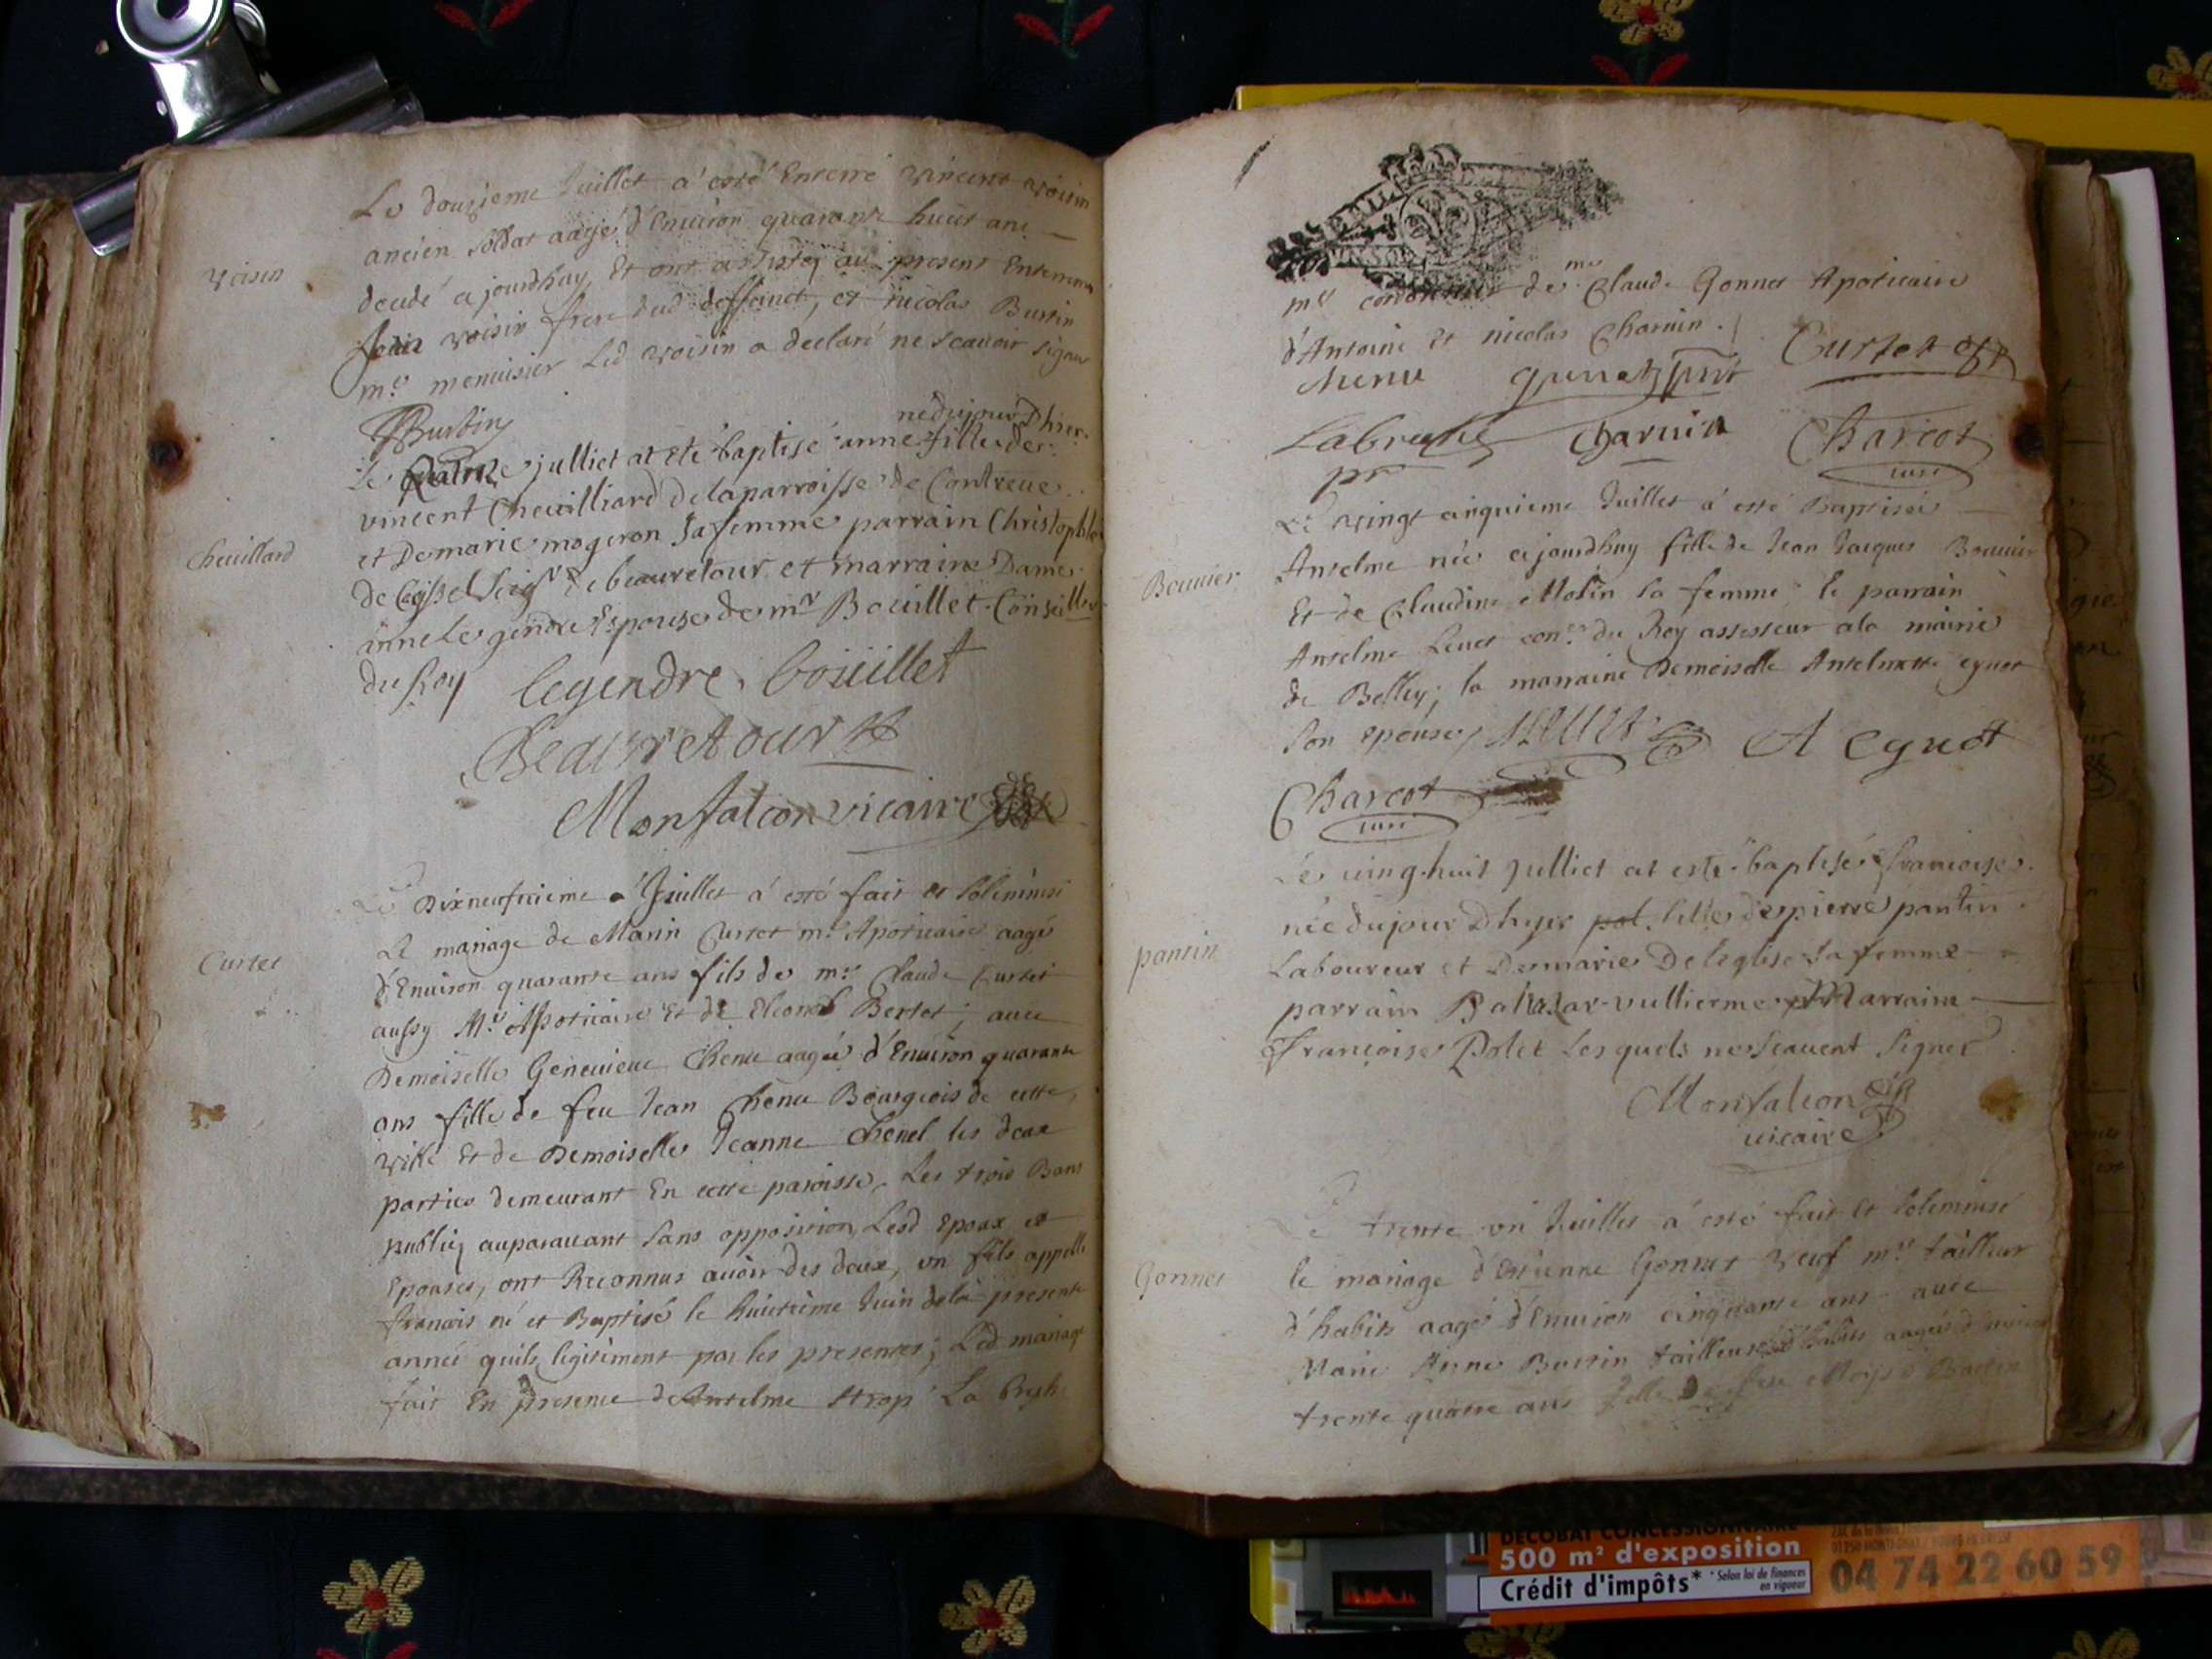 Le douzieme Juillet a esté Enterré vincent voisin
voisin
ancien soldat aagé d'Enuiron quarante huict ans
decedé ajourdhuy, Et ont assistez au present Enterrement
voisin frere dud deffunct, et nicolas Burtin
me menuisier Led voisin a declaré ne scauoir signer
Burtin
née du jour D hier
Le quatorze julliet at eté baptisé anne fille de
vincent Cheuilliard de la parroisse de Contreue
Cheuillard
et De marie mogeron sa femme parrain Christophle
de Seigr de beauretour et marraine Dame
anne Le gendre Espouse de mr Bouillet Conseiller
du Roy legendre bouillet
Beauretour
Monfalcon vicaire
Le Dixneufuieme Juillet a esté fait et solemnisé
Le mariage de Marin Curtet me Apoticaire aagé
Curtet
d'Enuiron quarante ans fils de me Claude Curtet
aussy Me Apoticaire Et de Bertet ; auec
Demoiselle Geneuieue Chenu aagée d'Enuiron quarante
ans fille de feu Jean Chenu Bourgeois de cette
ville Et de Demoiselle Jeanne Chenel les deux
parties demeurant En cette paroisse, Les trois Bans
publiez auparauant sans opposition, Lesd Epoux et
Epouses, ont Reconnus auoir des deux, un fils appellé
francois né et Baptisé le huictieme Juin de la presente
année quils legitiment par les presentes ; Led mariage
fait En presence de Anselme La
me de me Claude Gonnet Apoticaire
d'Antoine Et nicolas Charuin.
Chenu Curtet
Labruyere Charuin Charcot
pr curé
Le vingt cinquieme Juillet a esté Baptisée
Anselme née ajourdhuy fille de Jean Jacques Bouuier
Bouuier
Et de Claudine Molin sa femme ; le parrain
Anselme Leuet coner du Roy assesseur a la mairie
de Belley ; la marraine Demoiselle Anselmette eguet
son epouse, A eguet
Charcot
curé
Le uing-huit julliet at esté baptisée francoise
née du jour D hyer pol. fille de pierre pantin
pantin
Laboureur et De marie De leglise sa femme
parrain Baltazar vullierme Marraine
françoise Polet Les quels ne scauent signer
Monfalcon
vicaire
Le trente un Juillet a esté fait et solemnisé
le mariage d'Estienne Gonnet veuf me tailleur
Gonnet
d'habits aagé d'Enuiron cinquante ans auec
Marie Anne Burtin tailleuse d'habits aagée d'enuiron
trente quatre ans fille De feu Burtin
DECOBAT CONCESSIONNAIRE
500 m² d'exposition
Crédit d'impôts* * Selon loi de finances
en vigueur
04 74 22 60 59